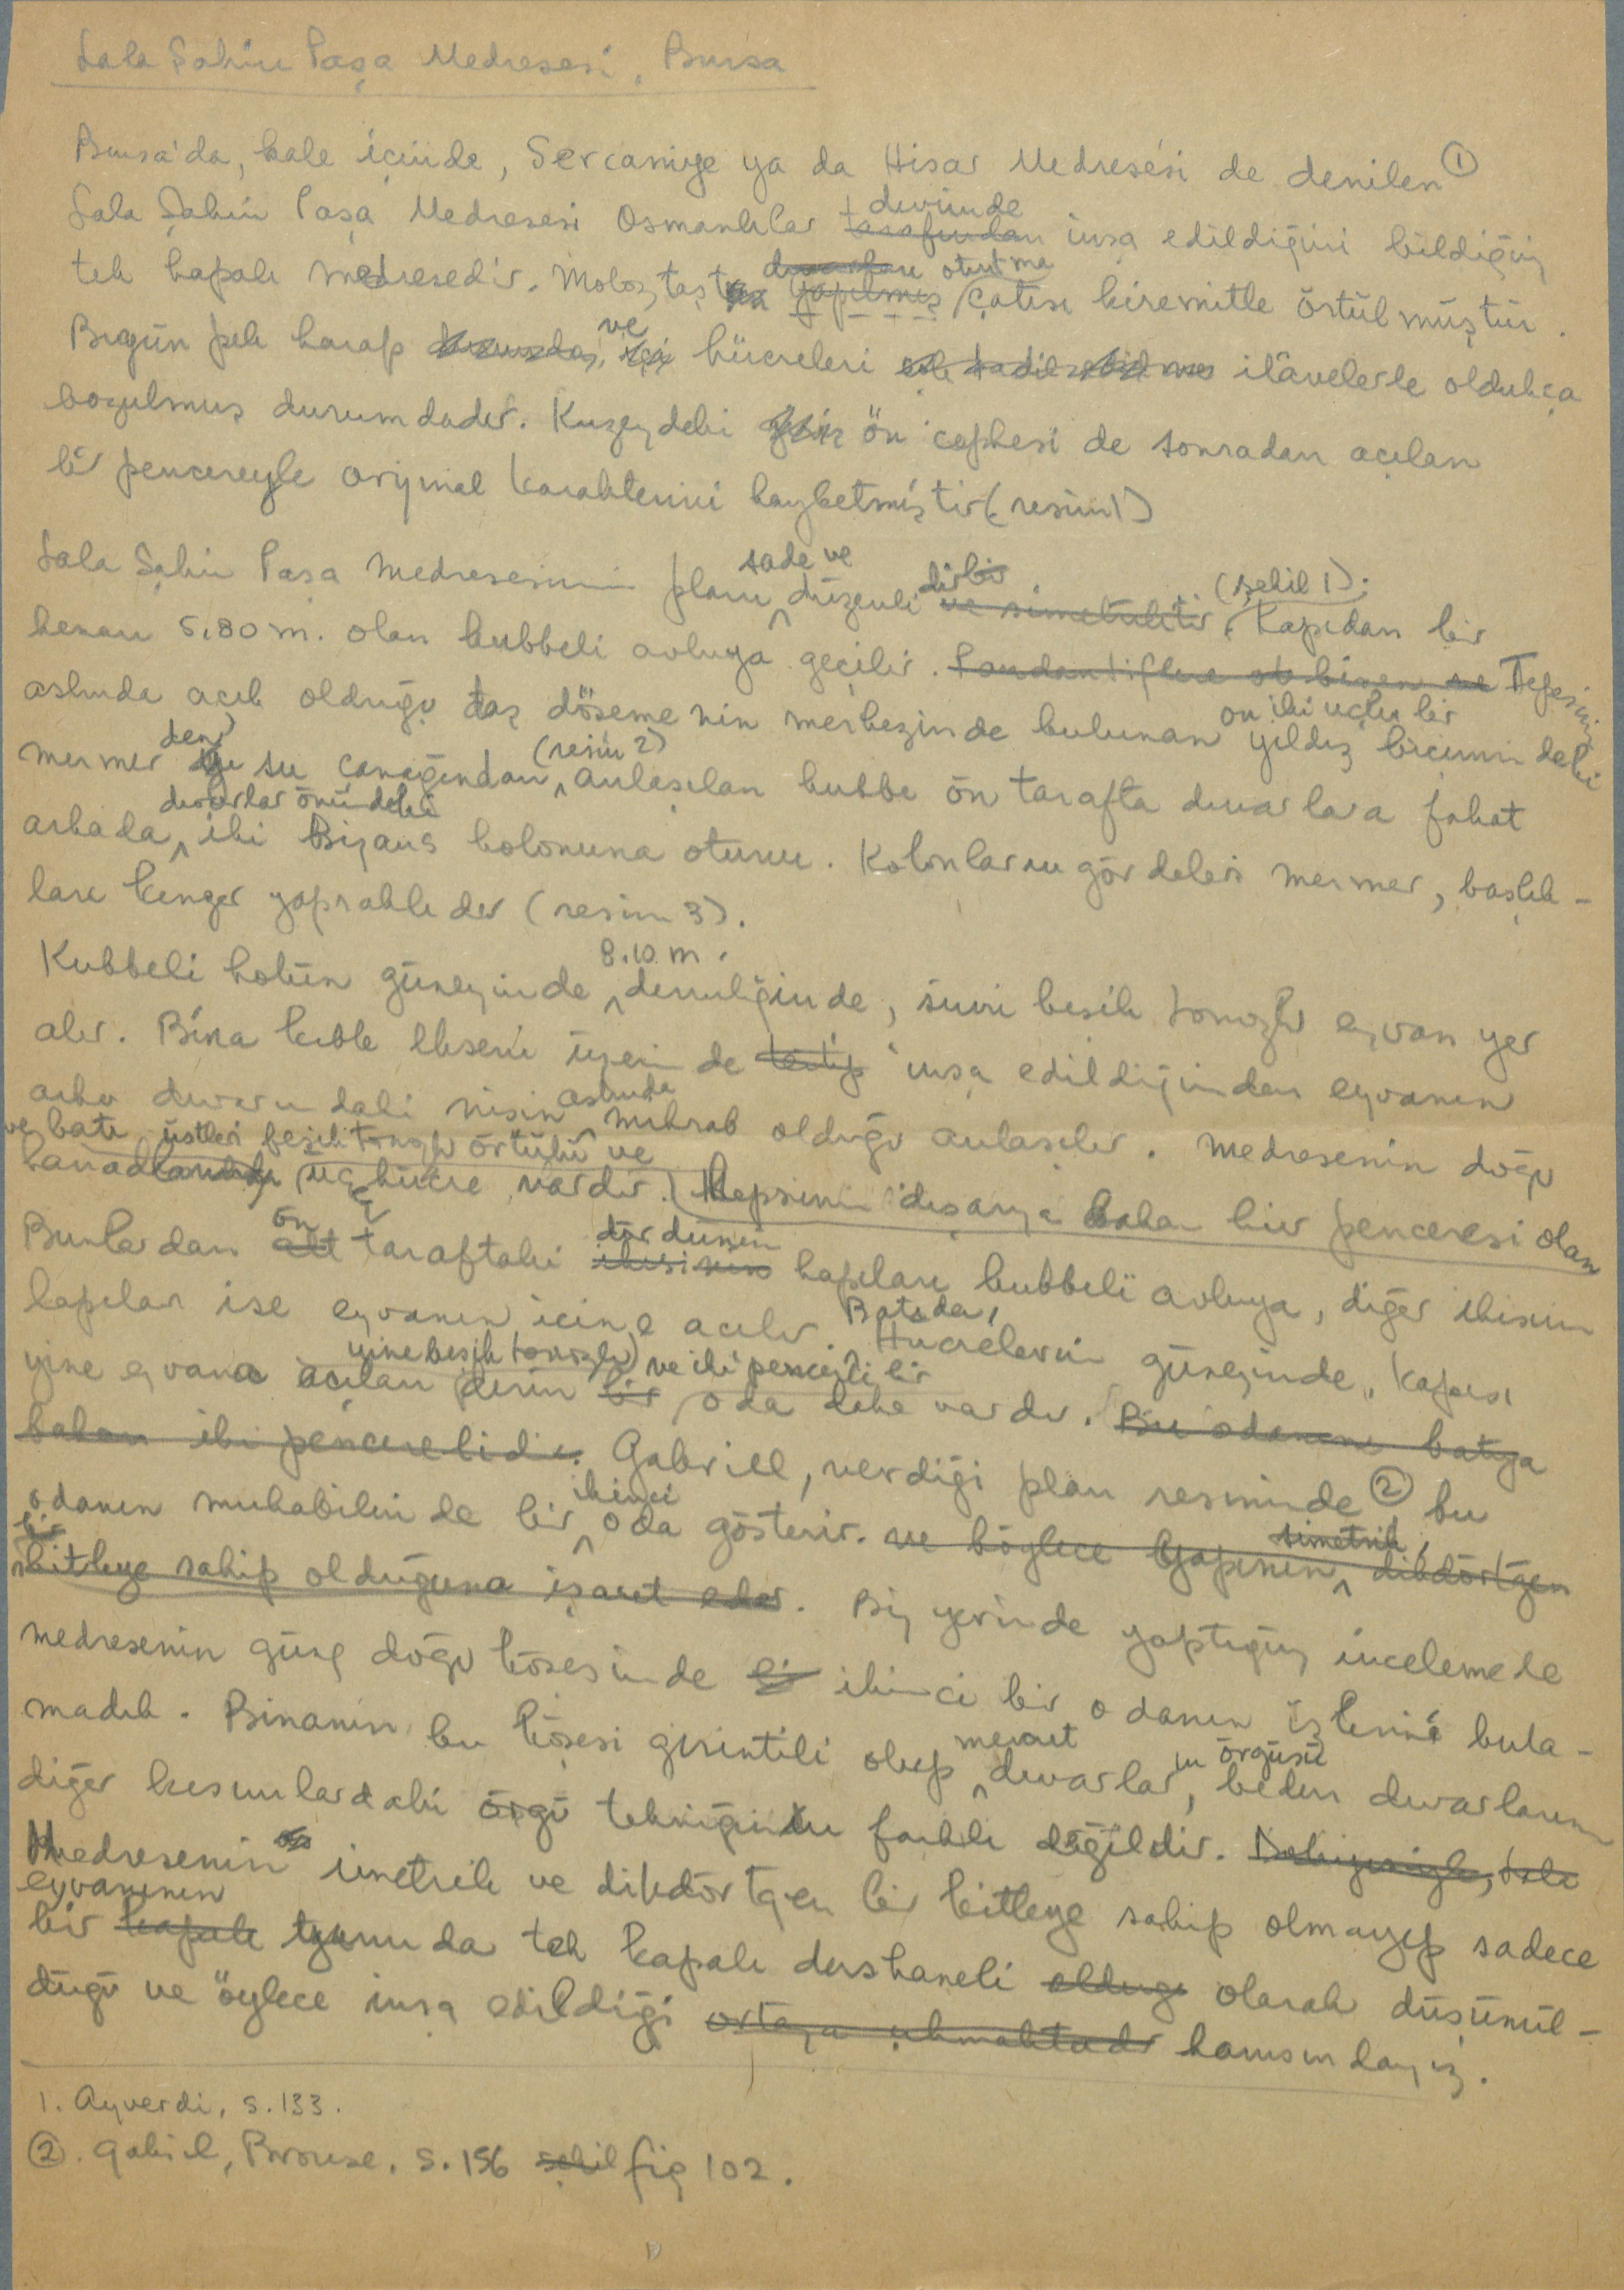 Lala Şahin Paşa Medresesi, Bursa
Bursa'da, kale içinde, Sercamiye ya da Hisar Medresesi de denilen ①
devrinde
Lala Şahin Paşa Medresesi Osmanlılar tarafından inşa edildiğini bildiğimiz
duvarları oturtma
tek kapalı medresedir. Moloz taştan yapılmış çatısı kiremitle örtülmüştür.
ve
Bugün pek harap hücreleri ilâvelerle oldukça
bozulmuş durumdadır. Kuzeydeki ön cephesi de sonradan açılan
bir pencereyle orijinal karakterini kaybetmiştir (resim 1)
sade ve dir bir (şekil 1).
Lala Şahin Paşa Medresesinin planı düzenli ve simetriktir. Kapıdan bir
kenarı 5.80 m. olan kubbeli avluya geçilir. Pandantiflere Tepesinin
on iki uçlu bir
aslında açık olduğu taş döşemenin merkezinde bulunan yıldız biçimindeki
den (resim 2)
mermer su çanağından anlaşılan kubbe ön tarafta duvarlara fakat
duvarlar önündeki
arkada iki Bizans kolonuna oturur. Kolonların gövdeleri mermer, başlık-
ları kenger yapraklıdır (resim 3).
8.10 m.
Kubbeli holün güneyinde derinliğinde, sivri beşik tonozlu eyvan yer
alır. Bina kıble ekseni üzerinde inşa edildiğinden eyvanın
aslında
arka duvarındaki nişin mihrab olduğu anlaşılır. Medresenin doğu
ve batı üstleri beşik tonozla örtülü ve
kanadlarında üç hücre vardır. Hepsinin dışarıya bakan birer penceresi olan
ön dördünün
Bunlardan alt taraftaki ikisinin kapıları kubbeli avluya, diğer ikisinin
Batıda,
kapıları ise eyvanın içine açılır. Hücrelerin güneyinde, kapısı
yine beşik tonozlu ve iki pencereli bir
yine eyvana açılan derin bir oda daha vardır. Bu odanın batıya
bakan iki pencerelidir. Gabriel, verdiği plan resminde ② bu
ikinci
odanın mukabilinde bir oda gösterir. ve böylece yapının dikdörtgen
simetrik,
bir
kitleye sahip olduğuna işaret eder. Biz yerinde yaptığımız incelemede
medresenin güney doğu köşesinde ikinci bir odanın izlerini bula-
mevcut
madık. Binanın bu köşesi girintili olup duvarlar, beden duvarlarının
ın örgüsü
diğer kısımlardaki örgü tekniğinden farklı değildir.
Medresenin simetrik ve dikdörtgen bir kitleye sahip olmayıp sadece
eyvanının
bir kapalı yanında tek kapalı dershaneli olduğu olarak düşünül-
düğü ve öylece inşa edildiği ortaya çıkmaktadır kanısındayız.
1. Ayverdi, s. 133.
②. Gabriel, Brouse. s. 156 şekil fig 102.